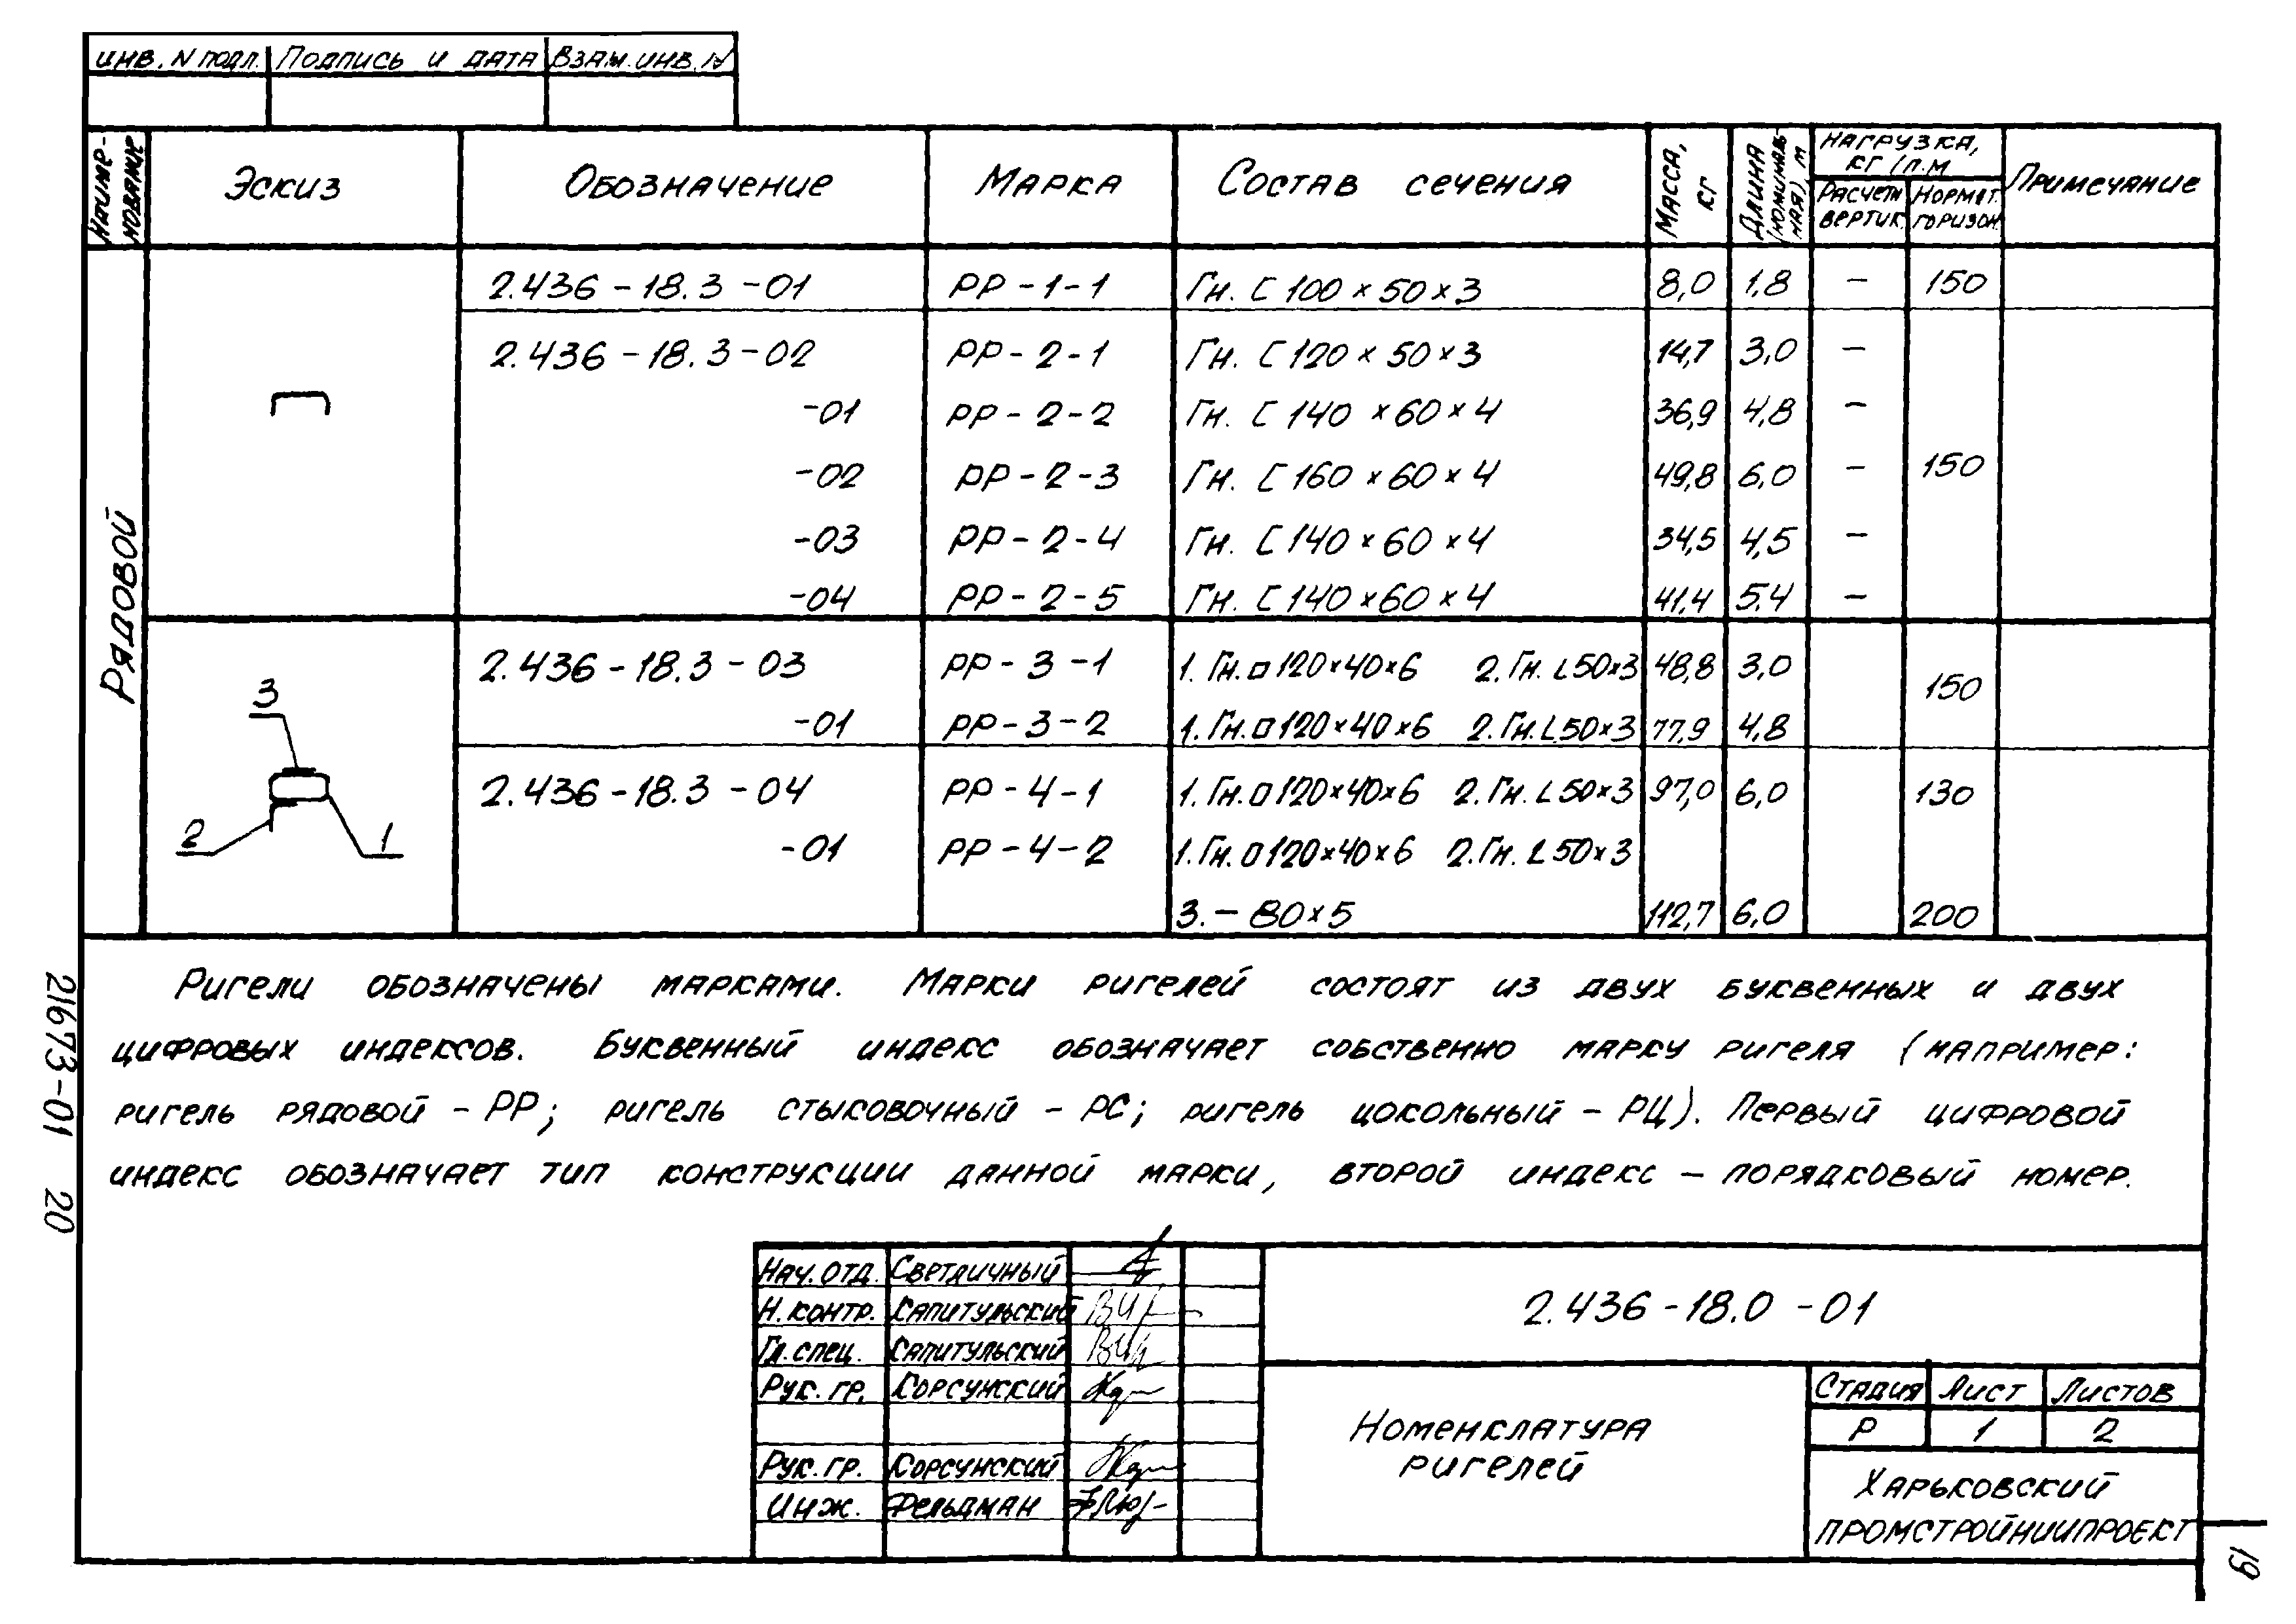 инв. N подл. Подпись и дата Взам. инв. N
Наиме-
нование
Эскиз
Обозначение
Марка
Состав сечения
Масса,
кг
Длина
(номиналь
ная), м
Нагрузка,
кг/п.м
Расчетн
вертик.
Нормат.
горизон.
Примечание
Рядовой
2.436-18.3-01 РР-1-1 Гн. [ 100×50×3 8,0 1,8 - 150
2.436-18.3-02 РР-2-1 Гн. [ 120×50×3 14,7 3,0 -
-01 РР-2-2 Гн. [ 140×60×4 36,9 4,8 -
-02 РР-2-3 Гн. [ 160×60×4 49,8 6,0 - 150
-03 РР-2-4 Гн. [ 140×60×4 34,5 4,5 -
-04 РР-2-5 Гн. [ 140×60×4 41,4 5.4 -
2.436-18.3-03 РР-3-1 1. Гн. □ 120×40×6 2. Гн. L 50×3 48,8 3,0 150
-01 РР-3-2 1. Гн. □ 120×40×6 2. Гн. L 50×3 77,9 4,8
2.436-18.3-04 РР-4-1 1. Гн. □ 120×40×6 2. Гн. L 50×3 97,0 6,0 130
-01 РР-4-2 1. Гн. □ 120×40×6 2. Гн. L 50×3
3. - 80×5 112,7 6,0 200
3
2
1
Ригели обозначены марками. Марки ригелей состоят из двух буквенных и двух
цифровых индексов. Буквенный индекс обозначает собственно марку ригеля (например:
ригель рядовой - РР; ригель стыковочный - РС; ригель цокольный - РЦ). Первый цифровой
индекс обозначает тип конструкции данной марки, второй индекс - порядковый номер.
21673-01 20
Нач. отд. Светличный
Н. контр. Капитульский
Гл. спец. Капитульский
Рук. гр. Корсунский
Рук. гр. Корсунский
Инж. Фельдман
2.436-18.0-01
Номенклатура
ригелей
Стадия Лист Листов
Р 1 2
Харьковский
ПРОМСТРОЙНИИПРОЕКТ
19